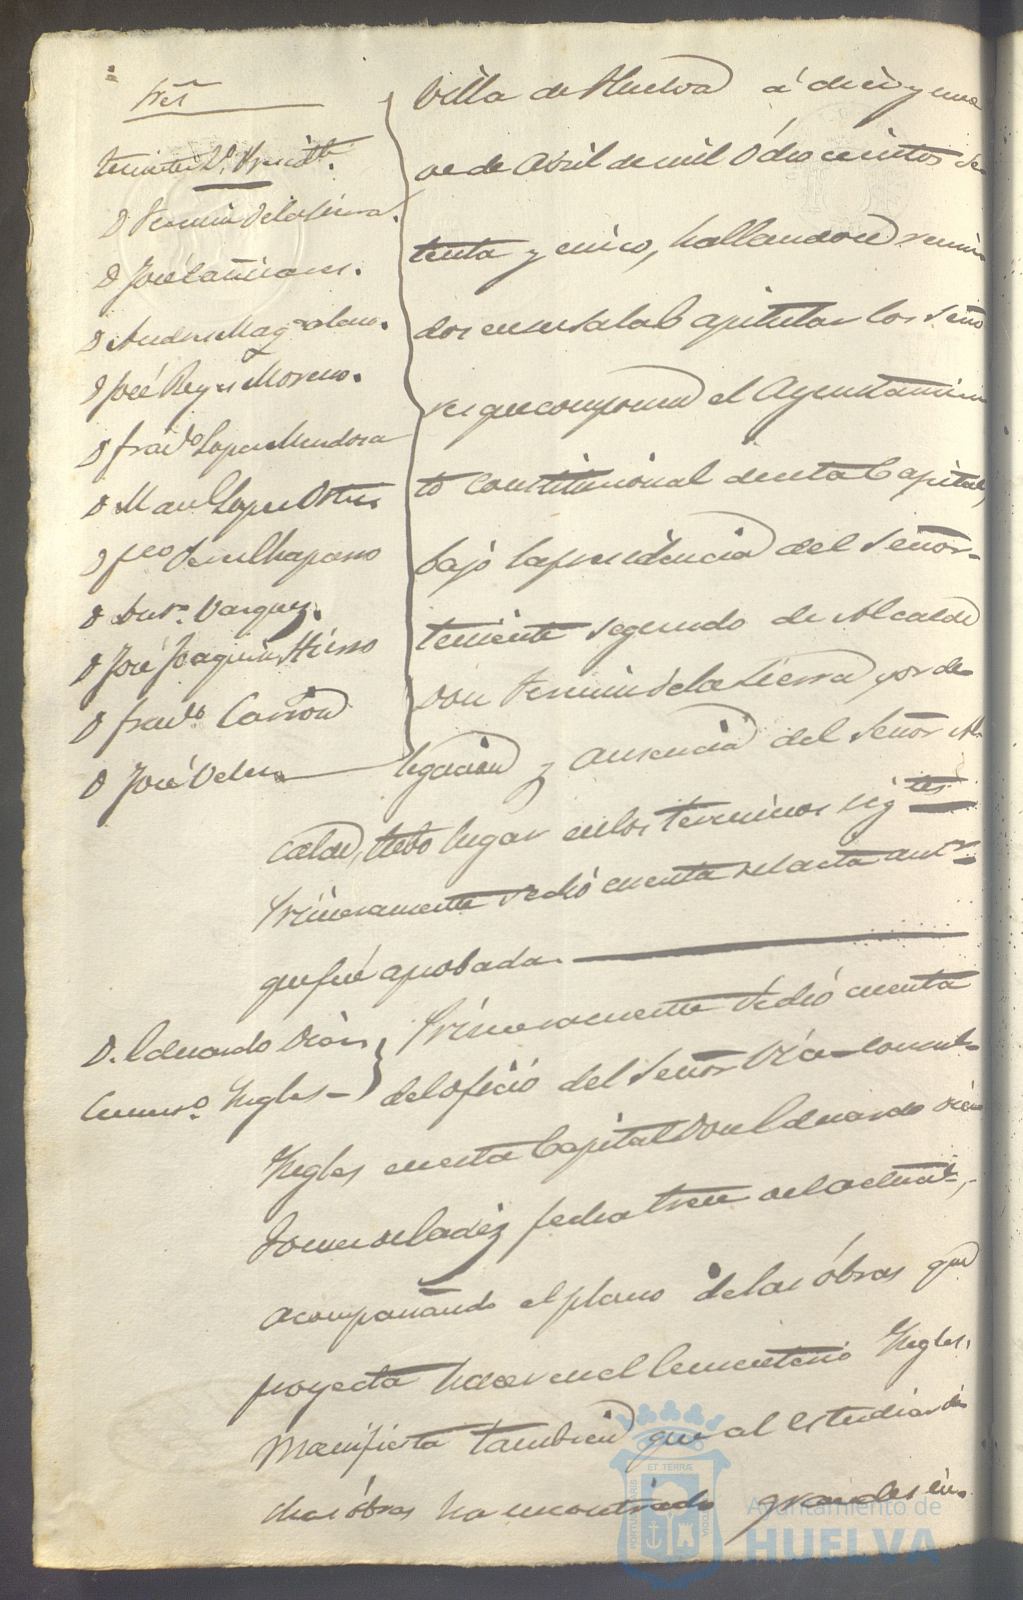 Sres
Teniente 2º Presidte.
D Fermin de la Sierra.
D José Cañizares.
D Andres Magdaleno.
D José Reyes Moreno.
D Francº Lopez Mendoza
D Manl Lopez Ortiz
D Jose Chaparro
D Anto. Vazquez.
D José Joaquin Hierro
D Francº Carrion
D José Velez
Villa de Huelva á diez y nue
ve de Abril de mil ochocientos se
tenta y cinco, hallandose reuni
dos en su sala Capitular los Seño
res que componen el Ayuntamien
to Constitucional de esta Capital,
bajo la presidencia del Señor
teniente segundo de Alcalde
Don Fermin de la Sierra, por de
legacion y ausencia del Señor Al
calde, tubo lugar en los terminos sigtes
Primeramente se dió cuenta del acta antr.
que fué aprobada.
D. Eduardo Diaz
Cemento. Ingles
Primeramente se dió cuenta
del oficio del Señor Vice-Consul
Ingles en esta Capital Don Eduardo Diaz
fecha trece del actual,
acompañando el plano de las óbras que
proyecta hacer en el Cementerio Ingles.
Manifiesta tambien que al estudiar di
chas óbras ha encontrado grandes in
Ayuntamiento de
HUELVA